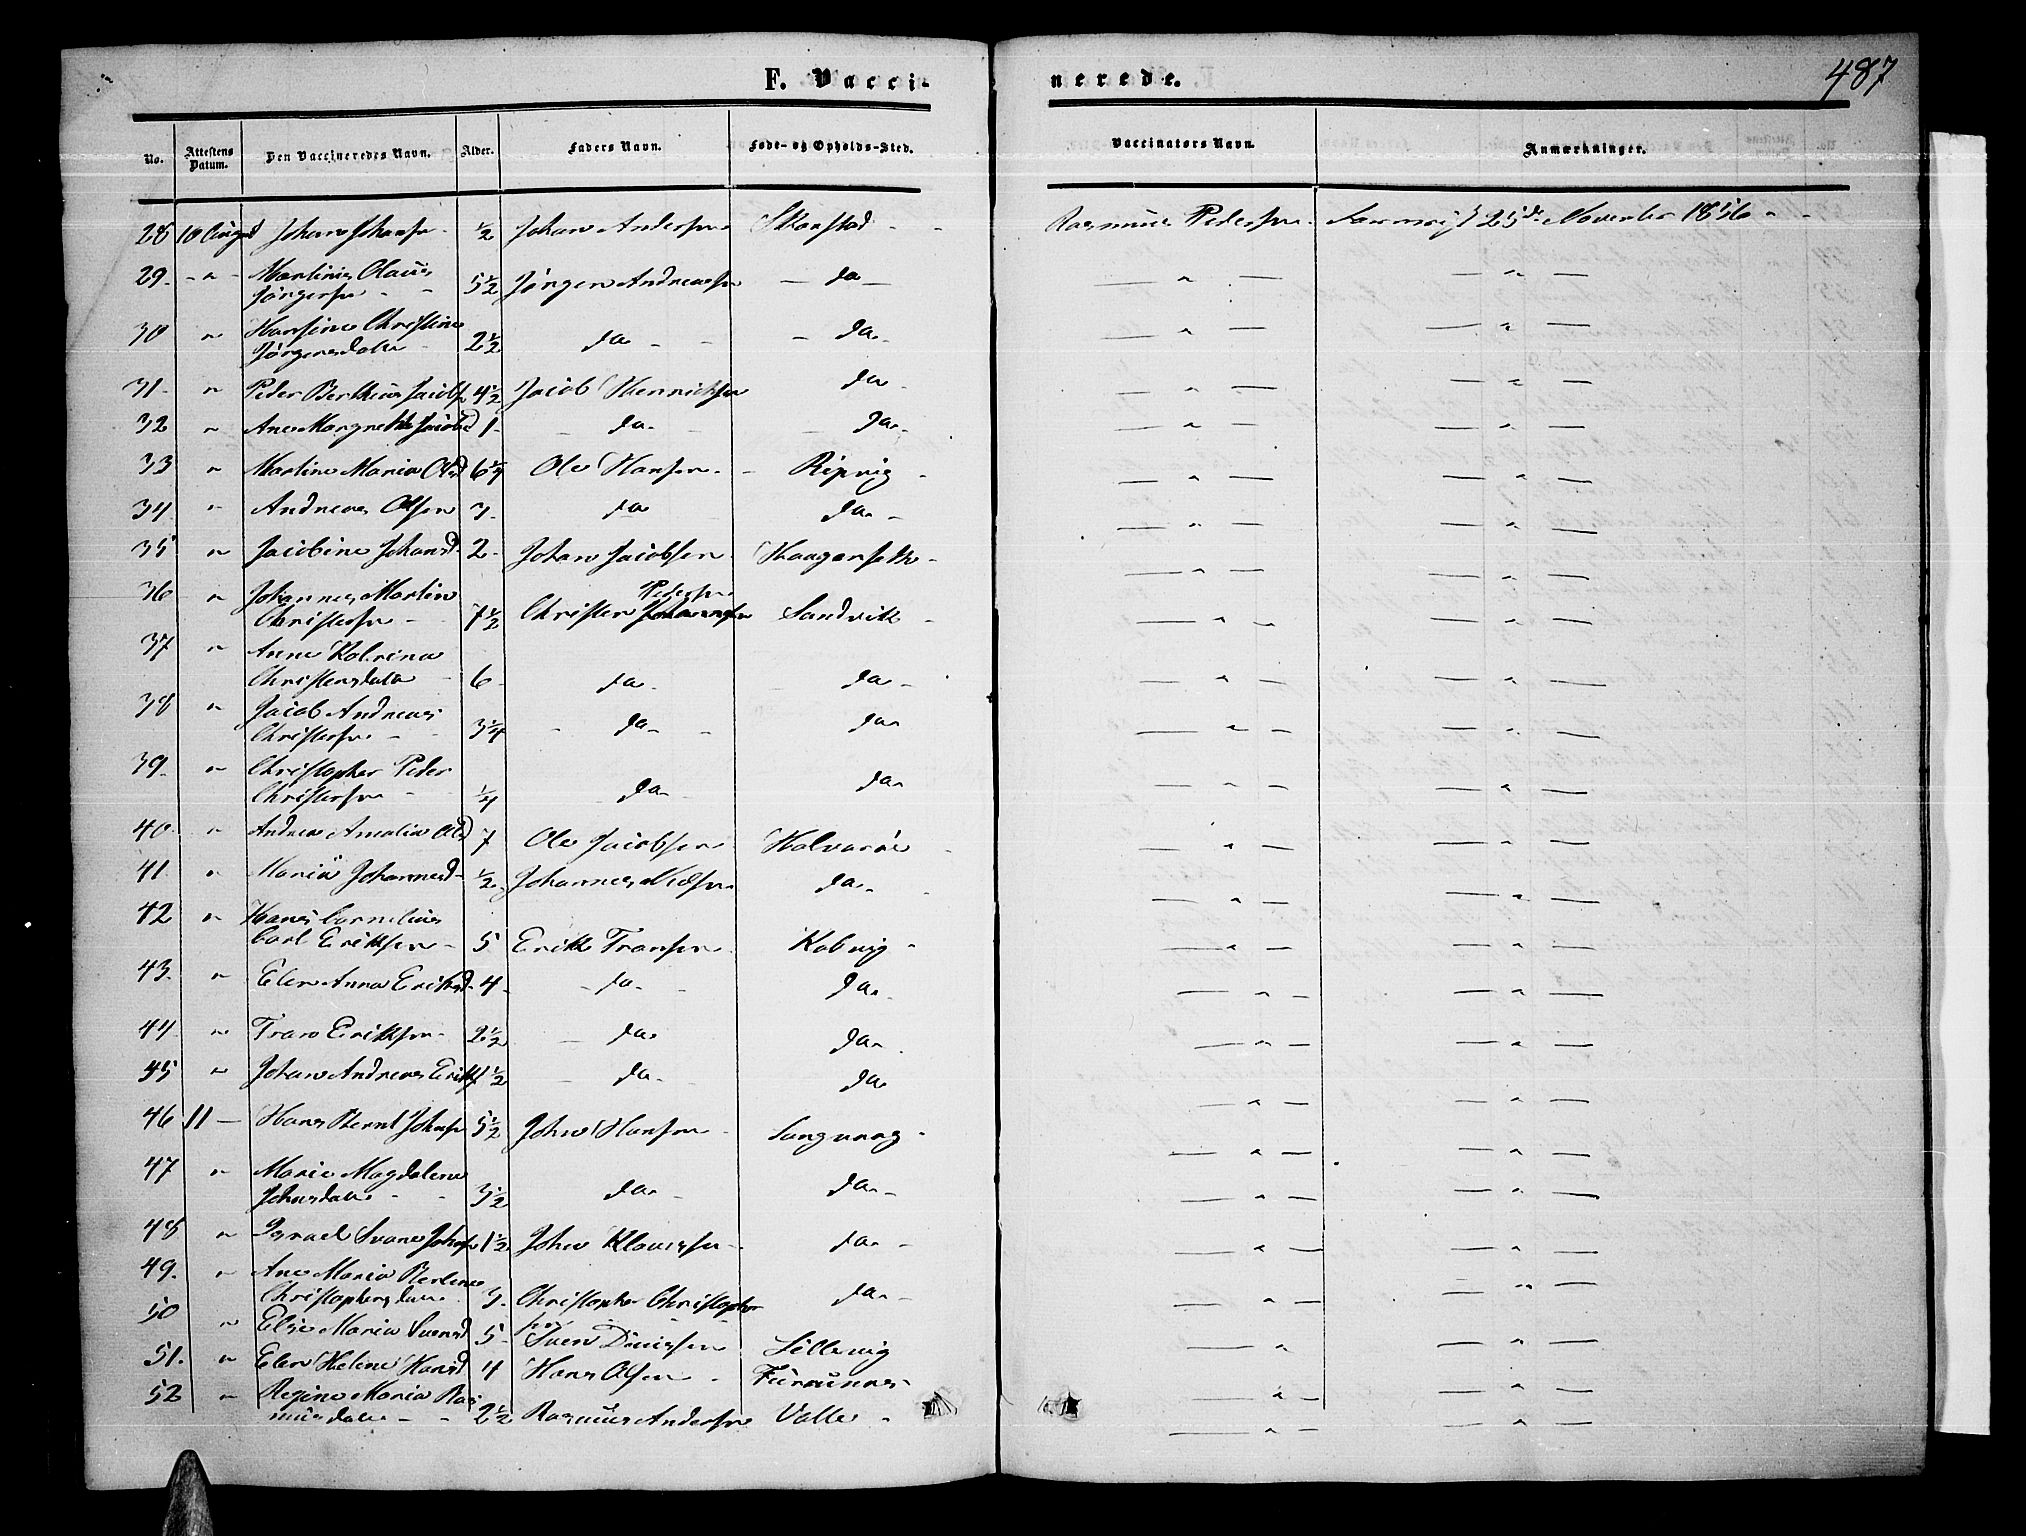 487
F. Vacci- nerede.
No. Attestens Datum. Den Vaccineredes Navn. Alder. Faders Navn. Føde- og Opholds-Sted. Vaccinators Navn. Anmærkninger.
28 10 August Johan Johansen 1/2 Johan Andersen Skarstad Rasmus Pedersen 25de November 1856
29 " Martinus Olaus
Jørgensen 5 1/2 Jørgen Andreassen — da —
30 " Hansine Christine
Jørgensdatter 2 1/2 da da
31 " Peder Berthius Jacobsen 4 1/2 Jacob Henrichsen da
32 " Ane Margrethe Jacobsd 1 da da
33 " Martine Maria Olsd 6 1/4 Ole Hansen Ripvig
34 " Andreas Olsen 3 da da
35 " Jacobine Johansd 2 Johan Jacobsen
36 " Johannes Martin Pedersen
Christersen 7 1/2 Christen Sandvik
37 " Anne Katrina
Christensdatter 6 da da
38 " Jacob Andreas
Christersen 3 1/4 da da
39 " Christopher Peder
Christersen 1/4 da da
40 " Andrea Amalia Olsd 7 Ole Jacobsen Halvarøe
41 " Maria Johannesd 1/2 Johannes Nilsen da
42 " Hans Cornelius
Carl Eriksen 5 Erik Transen Kobvig
43 " Elen Anna Eriksd 4 da da
44 " Tran Eriksen 2 1/2 da da
45 " Johan Andreas Eriks 1 1/2 da da
46 11 — Hans Bernt Johnsen 5 1/2 John Hansen
47 " Marie Magdalene
Johnsdatter 3 1/2 da da
48 " Israel Svane Johnsen 1 1/2 John Klausen da
49 " Ane Maria Berline
Christophersdatter 3 Christopher Christopher da
50 " Else Maria Svensd 5 sen Sven Dinessen Sillevig
51 " Elen Heline Hansd 4 Hans Olsen
52 " Regine Maria Ras
musdatter 2 1/2 Rasmus Andersen Valle